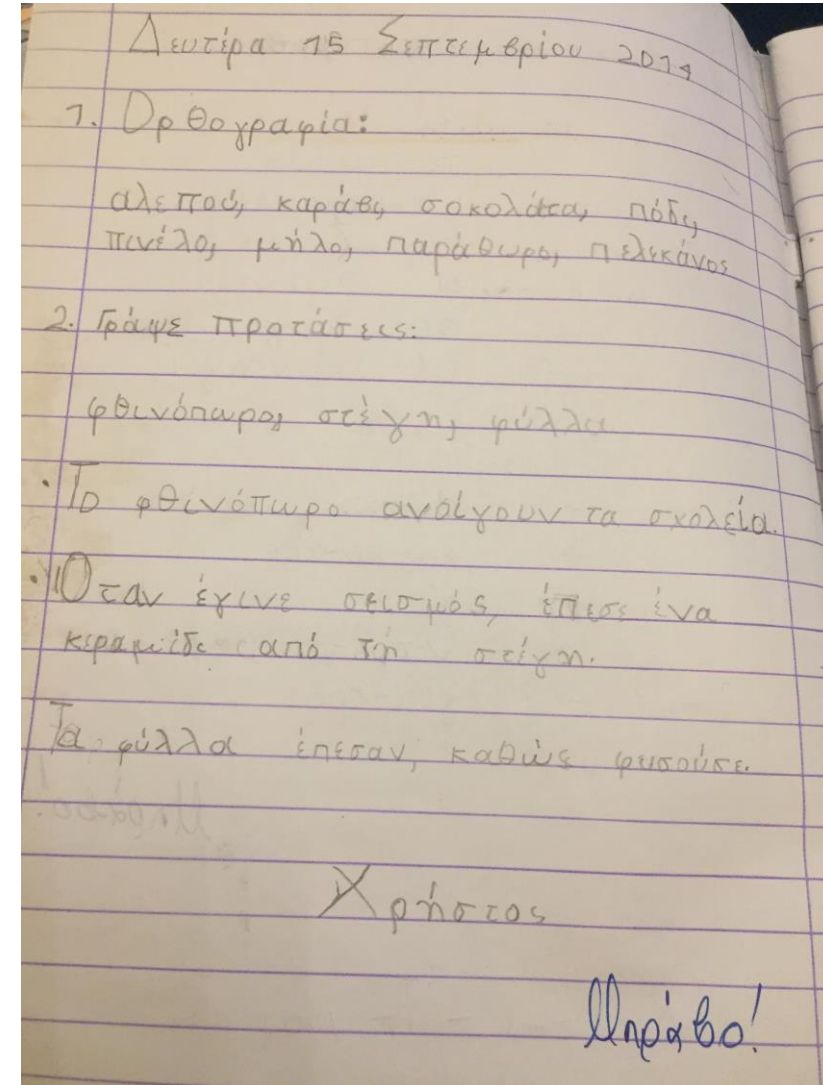 Δευτέρα 15 Σεπτεμβρίου 2014
1. Ορθογραφία:
αλεπού, καράβι, σοκολάτα, πόδι,
πινέλο, μήλο, παράθυρο, πελεκάνος
2. Γράψε προτάσεις:
φθινόπωρο, στέγη, φύλλα
· Το φθινόπωρο ανοίγουν τα σχολεία.
· Όταν έγινε σεισμός, έπεσε ένα
κεραμίδι από τη στέγη.
Τα φύλλα έπεσαν, καθώς φυσούσε.
Χρήστος
Μπράβο!